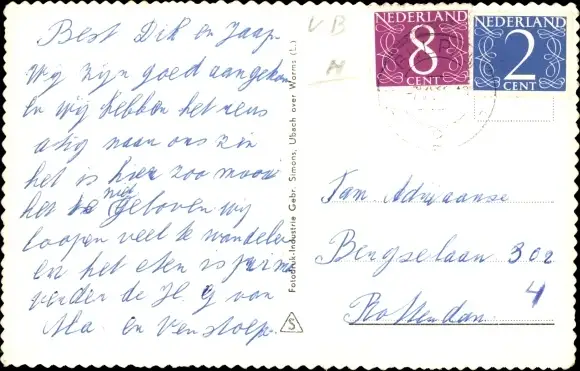 Best Dik en Jaap
Wij zijn goed aangekomen
en wij hebben het reus
atig naar ons zin
het is hier zoo mooi
het is niet geloven wij
loopen veel te wandelen
en het eten is prima
verder de H. G van
Ma. en
VB
NEDERLAND
8
CENT
NEDERLAND
2
CENT
Fotodruk-Industrie Gebr. Simons, Ubach over Worms (L.)
S
Fam Adriaanse
Bergselaan 302
Rotterdam 4